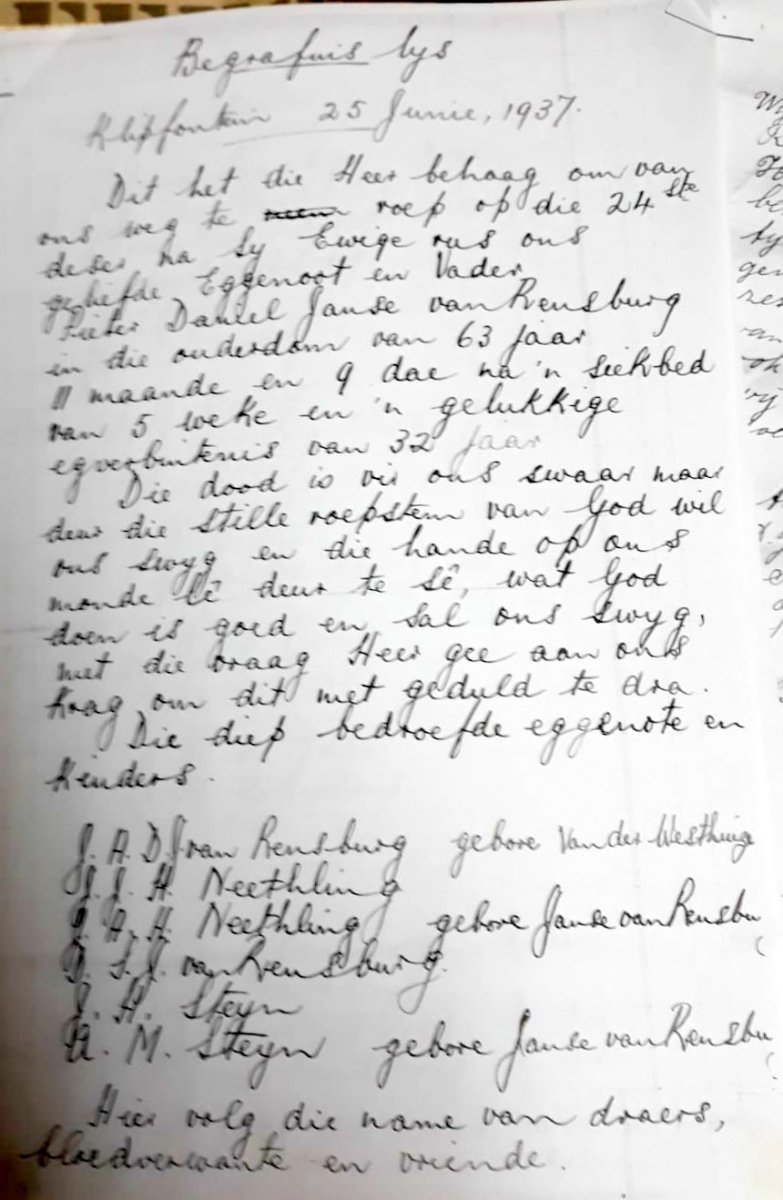 Begrafnis lys
Klipfontein 25 Junie, 1937.
Dit het die Heer behaag om van
ons weg te roep op die 24ste
deser na Sy Ewige rus ons
geliefde Eggenoot en Vader
Pieter Daniel Janse van Rensburg
in die ouderdom van 63 jaar
11 maande en 9 dae na 'n siekbed
van 5 weke en 'n gelukkige
egverbintenis van 32 jaar
Die dood is vir ons swaar maar
deur die stille roepstem van God wil
ons swyg en die hande op ons
monde lê deur te sê, wat God
doen is goed en sal ons swyg,
met die vraag Heer gee aan ons
krag om dit met geduld te dra.
Die diep bedroefde eggenote en
kinders.
J. A. D. J van Rensburg gebore Van der Westhuize
J. J. H. Neethling
J. A. H. Neethling gebore Janse van Rensbu
S. J. van Rensburg.
J. H. Steyn
A. M. Steyn gebore Janse van Rensbu
Hier volg die name van draers,
bloedverwante en vriende.